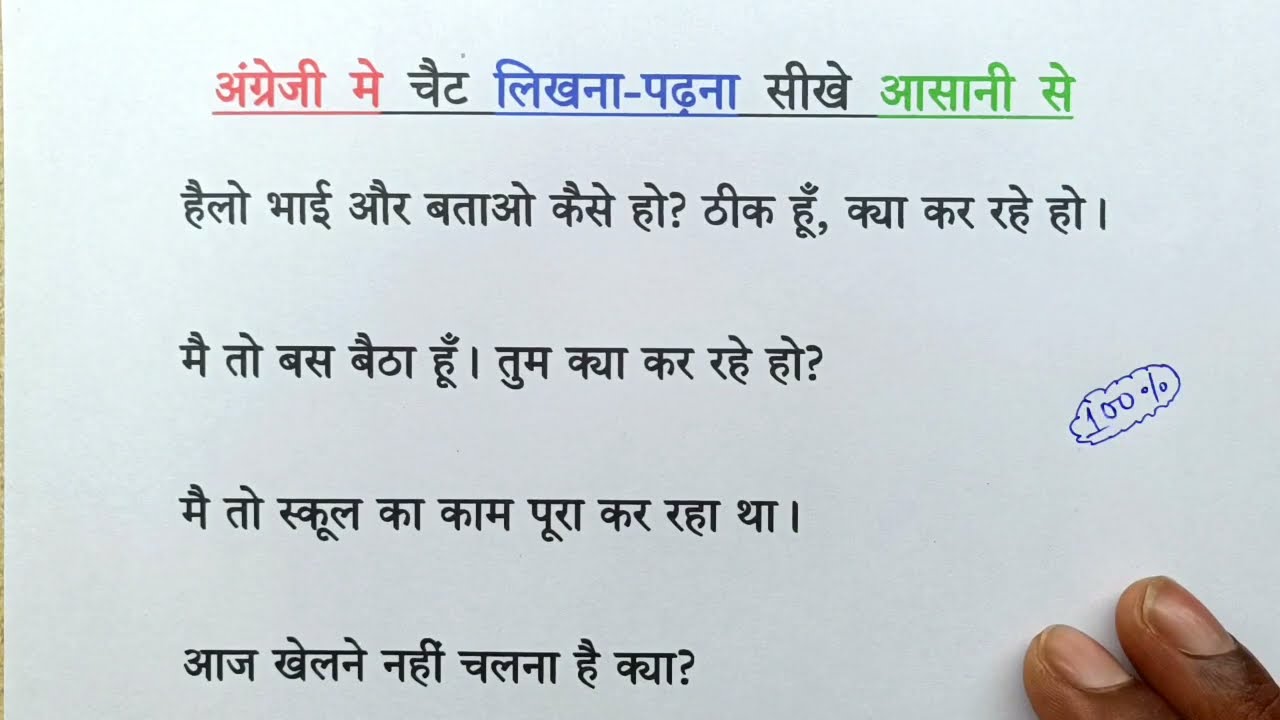 अंग्रेजी मे चैट लिखना-पढ़ना सीखे आसानी से
हैलो भाई और बताओ कैसे हो? ठीक हूँ, क्या कर रहे हो।
मै तो बस बैठा हूँ। तुम क्या कर रहे हो?
100%
मै तो स्कूल का काम पूरा कर रहा था।
आज खेलने नहीं चलना है क्या?